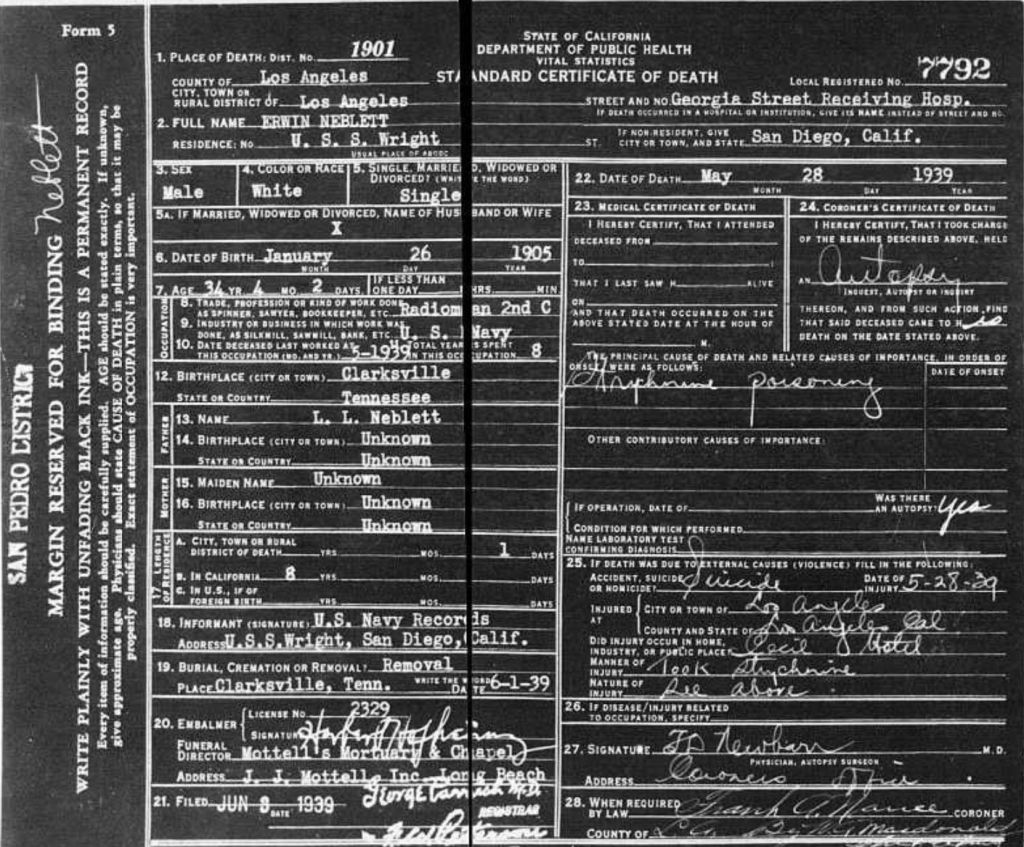 Form 5
SAN PEDRO DISTRICT
MARGIN RESERVED FOR BINDING Neblett
WRITE PLAINLY WITH UNFADING BLACK INK—THIS IS A PERMANENT RECORD
Every item of information should be carefully supplied. AGE should be stated exactly. If unknown,
give approximate age. Physicians should state CAUSE OF DEATH in plain terms, so that it may be
properly classified. Exact statement of OCCUPATION is very important.
STATE OF CALIFORNIA
DEPARTMENT OF PUBLIC HEALTH
VITAL STATISTICS
STANDARD CERTIFICATE OF DEATH
1. PLACE OF DEATH: DIST. No. 1901
LOCAL REGISTERED No. 7792
COUNTY OF Los Angeles
CITY, TOWN OR
RURAL DISTRICT OF Los Angeles
STREET AND NO. Georgia Street Receiving Hosp.
IF DEATH OCCURRED IN A HOSPITAL OR INSTITUTION, GIVE ITS NAME INSTEAD OF STREET AND NO.
2. FULL NAME ERWIN NEBLETT
RESIDENCE: No. U. S. S. Wright ST.
USUAL PLACE OF ABODE
IF NON-RESIDENT, GIVE
CITY OR TOWN, AND STATE San Diego, Calif.
3. SEX
Male
4. COLOR OR RACE
White
5. SINGLE, MARRIED, WIDOWED OR
DIVORCED? (WRITE THE WORD)
Single
5A. IF MARRIED, WIDOWED OR DIVORCED, NAME OF HUSBAND OR WIFE
X
6. DATE OF BIRTH January 26 1905
MONTH DAY YEAR
7. AGE 34 YR. 4 MO. 2 DAYS. IF LESS THAN
ONE DAY HRS. MIN.
OCCUPATION
8. TRADE, PROFESSION OR KIND OF WORK DONE
AS SPINNER, SAWYER, BOOKKEEPER, ETC. Radioman 2nd C
9. INDUSTRY OR BUSINESS IN WHICH WORK WAS
DONE, AS SILKMILL, SAWMILL, BANK, ETC. U. S. Navy
10. DATE DECEASED LAST WORKED AT
THIS OCCUPATION (MO. AND YR.) 5-1939
11. TOTAL YEARS SPENT
IN THIS OCCUPATION 8
12. BIRTHPLACE (CITY OR TOWN) Clarksville
STATE OR COUNTRY Tennessee
FATHER
13. NAME L. L. Neblett
14. BIRTHPLACE (CITY OR TOWN) Unknown
STATE OR COUNTRY Unknown
MOTHER
15. MAIDEN NAME Unknown
16. BIRTHPLACE (CITY OR TOWN) Unknown
STATE OR COUNTRY Unknown
17. LENGTH
OF RESIDENCE
A. CITY, TOWN OR RURAL
DISTRICT OF DEATH YRS. MOS. 1 DAYS
B. IN CALIFORNIA 8 YRS. MOS. DAYS
C. IN U.S., IF OF
FOREIGN BIRTH YRS. MOS. DAYS
18. INFORMANT (SIGNATURE) U.S. Navy Records
ADDRESS U.S.S.Wright, San Diego, Calif.
19. BURIAL, CREMATION OR REMOVAL? Removal
WRITE THE WORD
PLACE Clarksville, Tenn. DATE 6-1-39
20. EMBALMER LICENSE No. 2329
SIGNATURE
FUNERAL
DIRECTOR Mottell's Mortuary & Chapel
ADDRESS J. J. Mottell, Inc. Long Beach
21. FILED JUN 3 1939
DATE
REGISTRAR
22. DATE OF DEATH May 28 1939
MONTH DAY YEAR
23. MEDICAL CERTIFICATE OF DEATH
I HEREBY CERTIFY, THAT I ATTENDED
DECEASED FROM
TO
THAT I LAST SAW H ALIVE
ON
AND THAT DEATH OCCURRED ON THE
ABOVE STATED DATE AT THE HOUR OF
M.
24. CORONER'S CERTIFICATE OF DEATH
I HEREBY CERTIFY, THAT I TOOK CHARGE
OF THE REMAINS DESCRIBED ABOVE, HELD
AN Autopsy
INQUEST, AUTOPSY OR INQUIRY
THEREON, AND FROM SUCH ACTION FIND
THAT SAID DECEASED CAME TO His
DEATH ON THE DATE STATED ABOVE.
THE PRINCIPAL CAUSE OF DEATH AND RELATED CAUSES OF IMPORTANCE, IN ORDER OF
ONSET WERE AS FOLLOWS:
DATE OF ONSET
Strychnine poisoning
OTHER CONTRIBUTORY CAUSES OF IMPORTANCE:
IF OPERATION, DATE OF
WAS THERE
AN AUTOPSY? Yes
CONDITION FOR WHICH PERFORMED
NAME LABORATORY TEST
CONFIRMING DIAGNOSIS
25. IF DEATH WAS DUE TO EXTERNAL CAUSES (VIOLENCE) FILL IN THE FOLLOWING:
ACCIDENT, SUICIDE
OR HOMICIDE? Suicide
DATE OF
INJURY 5-28-39
INJURED
AT
CITY OR TOWN OF Los Angeles
COUNTY AND STATE OF Los Angeles Cal
DID INJURY OCCUR IN HOME,
INDUSTRY, OR PUBLIC PLACE? Cecil Hotel
MANNER OF
INJURY Took strychnine
NATURE OF
INJURY See above
26. IF DISEASE/INJURY RELATED
TO OCCUPATION, SPECIFY
27. SIGNATURE Newbarr M.D.
PHYSICIAN, AUTOPSY SURGEON
ADDRESS Coroners Office
28. WHEN REQUIRED
BY LAW Frank A. Nance CORONER
COUNTY OF L.A. By Macdonald